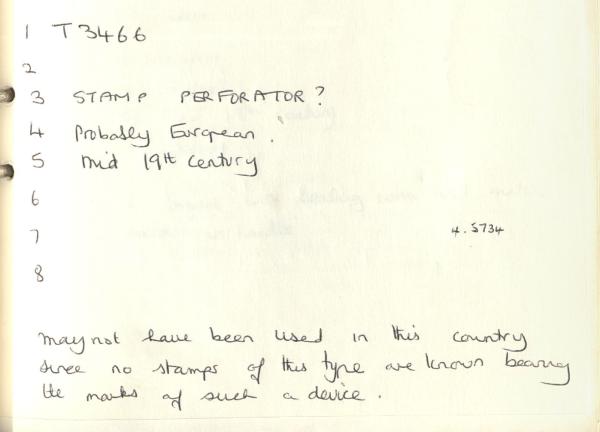 1 T3466
2
3 STAMP PERFORATOR?
4 Probably European.
5 Mid 19th Century
6
7 4.5734
8
may not have been used in this country
since no stamps of this type are known bearing
the marks of such a device.